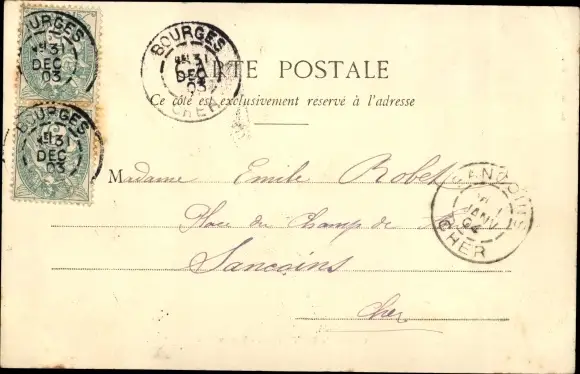 BOURGES
31
DEC
03
BOURGES
31
DEC
03
BOURGES
31
DEC
03
CHER
CARTE POSTALE
Ce côté est exclusivement reservé à l'adresse
Madame Emile Robet
Place du Champ de
Sancoins
Cher
SANCOINS
1
JANV
04
CHER